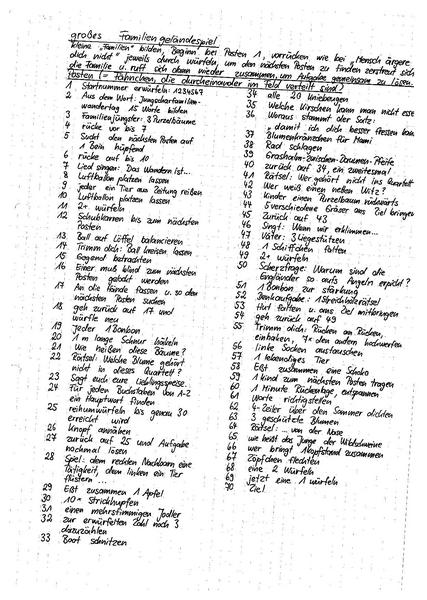 großes Familiengeländespiel
kleine „Familien" bilden, Beginn bei Posten 1, vorrücken wie bei „Mensch ärgere
dich nicht" jeweils durch würfeln, um den nächsten Posten zu finden zerstreut sich
die Familie u. ruft sich dann wieder zusammen, um Aufgabe gemeinsam zu lösen.
Posten (= Fähnchen, die durcheinander im Feld verteilt sind)
1 Startnummer erwürfeln: 1234567
2 Aus dem Wort: Jungscharfamilien-
wandertag 15 Worte bilden
3 Familienjüngster: 3 Purzelbäume
4 rücke vor bis 7
5 Sucht den nächsten Posten auf
1 Bein hüpfend
6 rücke auf bis 10
7 Lied singen: Das Wandern ist...
8 Luftballon platzen lassen
9 jeder ein Tier aus Zeitung reißen
10 Luftballon platzen lassen
11 2x würfeln
12 Schubkarren bis zum nächsten
Posten
13 Ball auf Löffel balancieren
14 Trimm dich: Ball kreisen lassen
15 Gegend betrachten
16 Einer muß blind zum nächsten
Posten gelotst werden
17 An die Hände fassen u. so den
nächsten Posten suchen
18 geh zurück auf 17 und
würfle neu
19 Jeder 1 Bonbon
20 1 m lange Schnur häkeln
21 Wie heißen diese Bäume?
22 Rätsel: Welche Blume gehört
nicht in dieses Quartett?
23 Sagt euch eure Lieblingsspeise.
24 Für jeden Buchstaben von A-Z
ein Hauptwort finden
25 reihumwürfeln bis genau 30
erreicht wird
26 Knopf annähen
27 zurück auf 25 und Aufgabe
nochmal lösen
28 Spiel: dem rechten Nachbarn eine
Tätigkeit, dem linken ein Tier
flüstern ...
29 Eßt zusammen 1 Apfel
30 10x Strickhupfen
31 einen mehrstimmigen Jodler
32 zur erwürfelten Zahl noch 3
dazuzählen
33 Boot schnitzen
34 alle 20 Kniebeugen
35 Welche Kirschen kann man nicht essen
36 Woraus stammt der Satz:
„damit ich dich besser fressen kann"
37 Blumenkränzchen für Mami
38 Rad schlagen
39 Grashalm-zwischen-Daumen-Pfeife
40 zurück auf 34, ein zweitesmal
41 Rätsel: Wer gehört nicht ins Quartett
42 Wer weiß einen neuen Witz?
43 Kinder einen Purzelbaum rückwärts
44 5 verschiedene Gräser ans Ziel bringen
45 Zurück auf 43
46 Singt: Wenn wir erklimmen...
47 Väter: 3 Liegestützen
48 1 Schiffchen falten
49 2x würfeln
50 Scherzfrage: Warum sind die
Engländer so aufs Angeln erpicht?
51 1 Bonbon zur Stärkung
52 Denkaufgabe: 1 Streichholzrätsel
53 Hut falten u. ans Ziel mitbringen
54 geh zurück auf 49
55 Trimm dich: Rücken an Rücken,
einhaken, 7x den andern hochwerfen
56 linke Socken austauschen
57 1 lebendiges Tier
58 Eßt zusammen eine Schoko
59 1 Kind zum nächsten Posten tragen
60 1 Minute Rückenlage, entspannen
61 Worte richtigstellen
62 4-Zeiler über den Sommer dichten
63 3 geschützte Blumen
64 Rätsel: ... von der Nase
65 wie heißt das Junge der Wildschweine
66 wer bringt 1 Kopfstand zusammen
67 Zöpfchen flechten
68 eine 2 Würfeln
69 jetzt eine 1 würfeln
70 Ziel